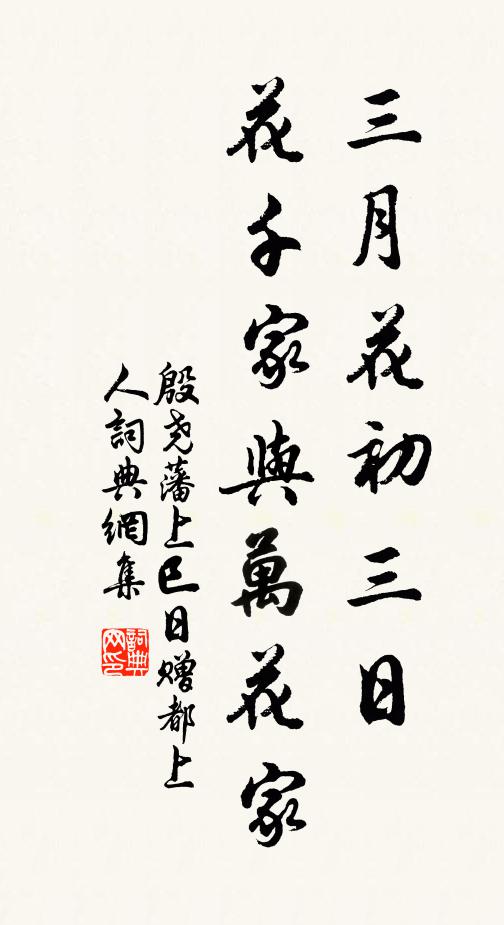 三月花初三日
花千家與萬花家
殷尧藩上巳日赠都上
人詞典網集
詞典
网印